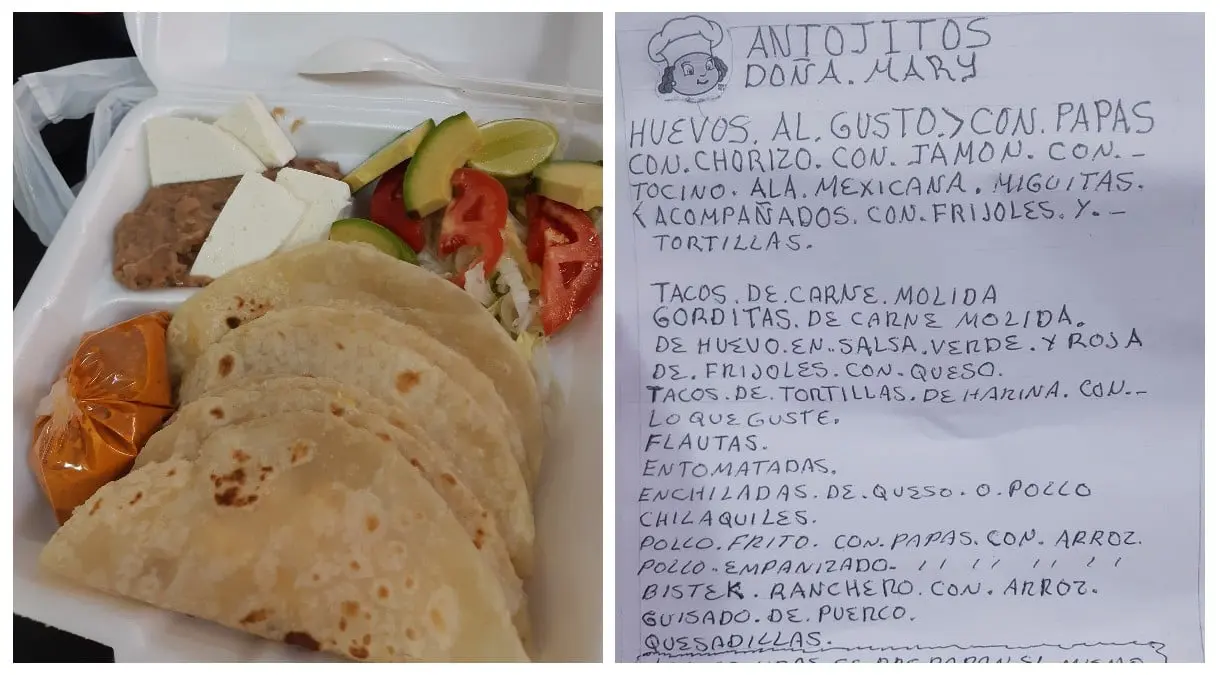 ANTOJITOS
DOÑA. MARY
HUEVOS. AL. GUSTO.>CON. PAPAS
CON. CHORIZO. CON. JAMON. CON.-
TOCINO. ALA. MEXICANA. MIGUITAS.
<ACOMPAÑADOS. CON. FRIJOLES. Y.-
TORTILLAS.
TACOS. DE. CARNE. MOLIDA
GORDITAS. DE CARNE MOLIDA.
DE HUEVO. EN.. SALSA. VERDE. Y ROJA
DE. FRIJOLES. CON. QUESO.
TACOS. DE. TORTILLAS. DE HARINA. CON.-
LO QUE GUSTE.
FLAUTAS.
ENTOMATADAS.
ENCHILADAS. DE. QUESO. O. POLLO
CHILAQUILES.
POLLO. FRITO. CON. PAPAS. CON. ARROZ.
POLLO. EMPANIZADO- 11 11 11 11
BISTEK. RANCHERO. CON. ARROZ.
GUISADO. DE. PUERCO.
QUESADILLAS.